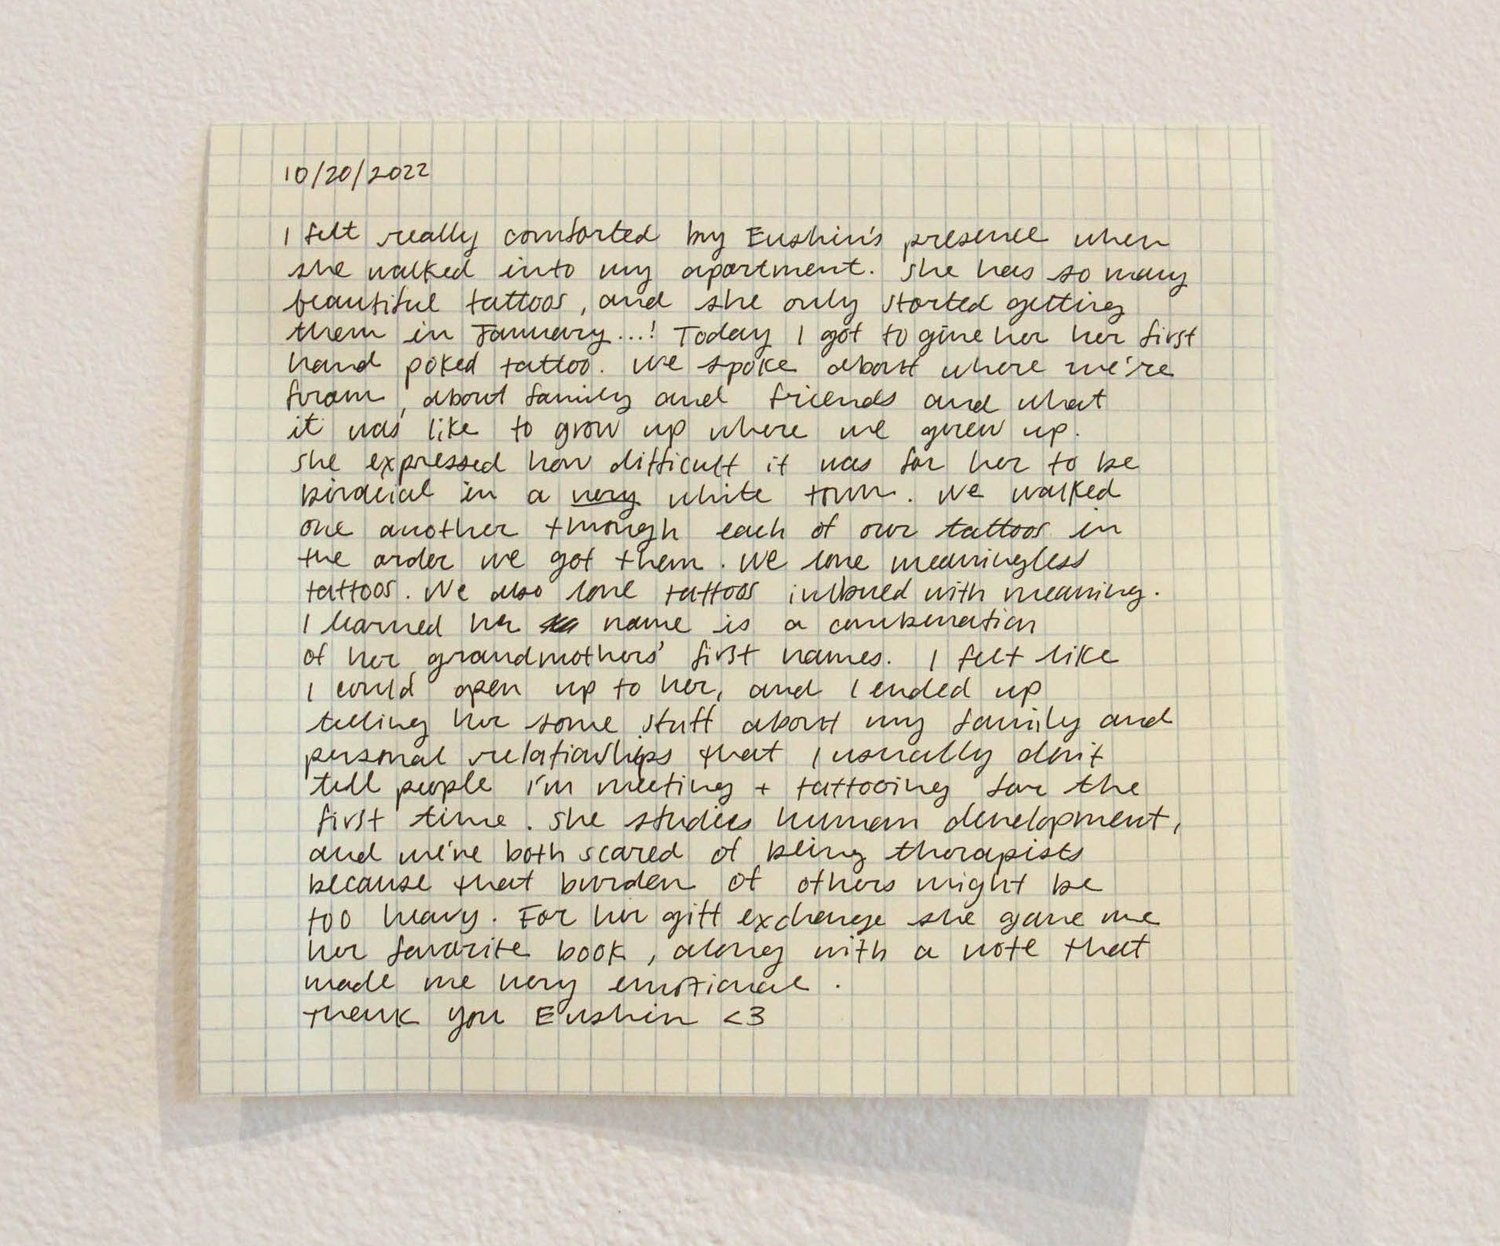 10/20/2022
I felt really comforted by Eushin's presence when
she walked into my apartment. She has so many
beautiful tattoos, and she only started getting
them in January...! Today I got to give her her first
hand poked tattoo. We spoke about where we're
from, about family and friends and what
it was like to grow up where we grew up.
She expressed how difficult it was for her to be
biracial in a very white town. We walked
one another through each of our tattoos in
the order we got them. We love meaningless
tattoos. We also love tattoos imbued with meaning.
I learned her name is a combination
of her grandmothers' first names. I felt like
I could open up to her, and I ended up
telling her some stuff about my family and
personal relationships that I usually don't
tell people i'm meeting + tattooing for the
first time. She studies human development,
and we're both scared of being therapists
because that burden of others might be
too heavy. For her gift exchange she gave me
her favorite book, along with a note that
made me very emotional.
Thank you Eushin <3